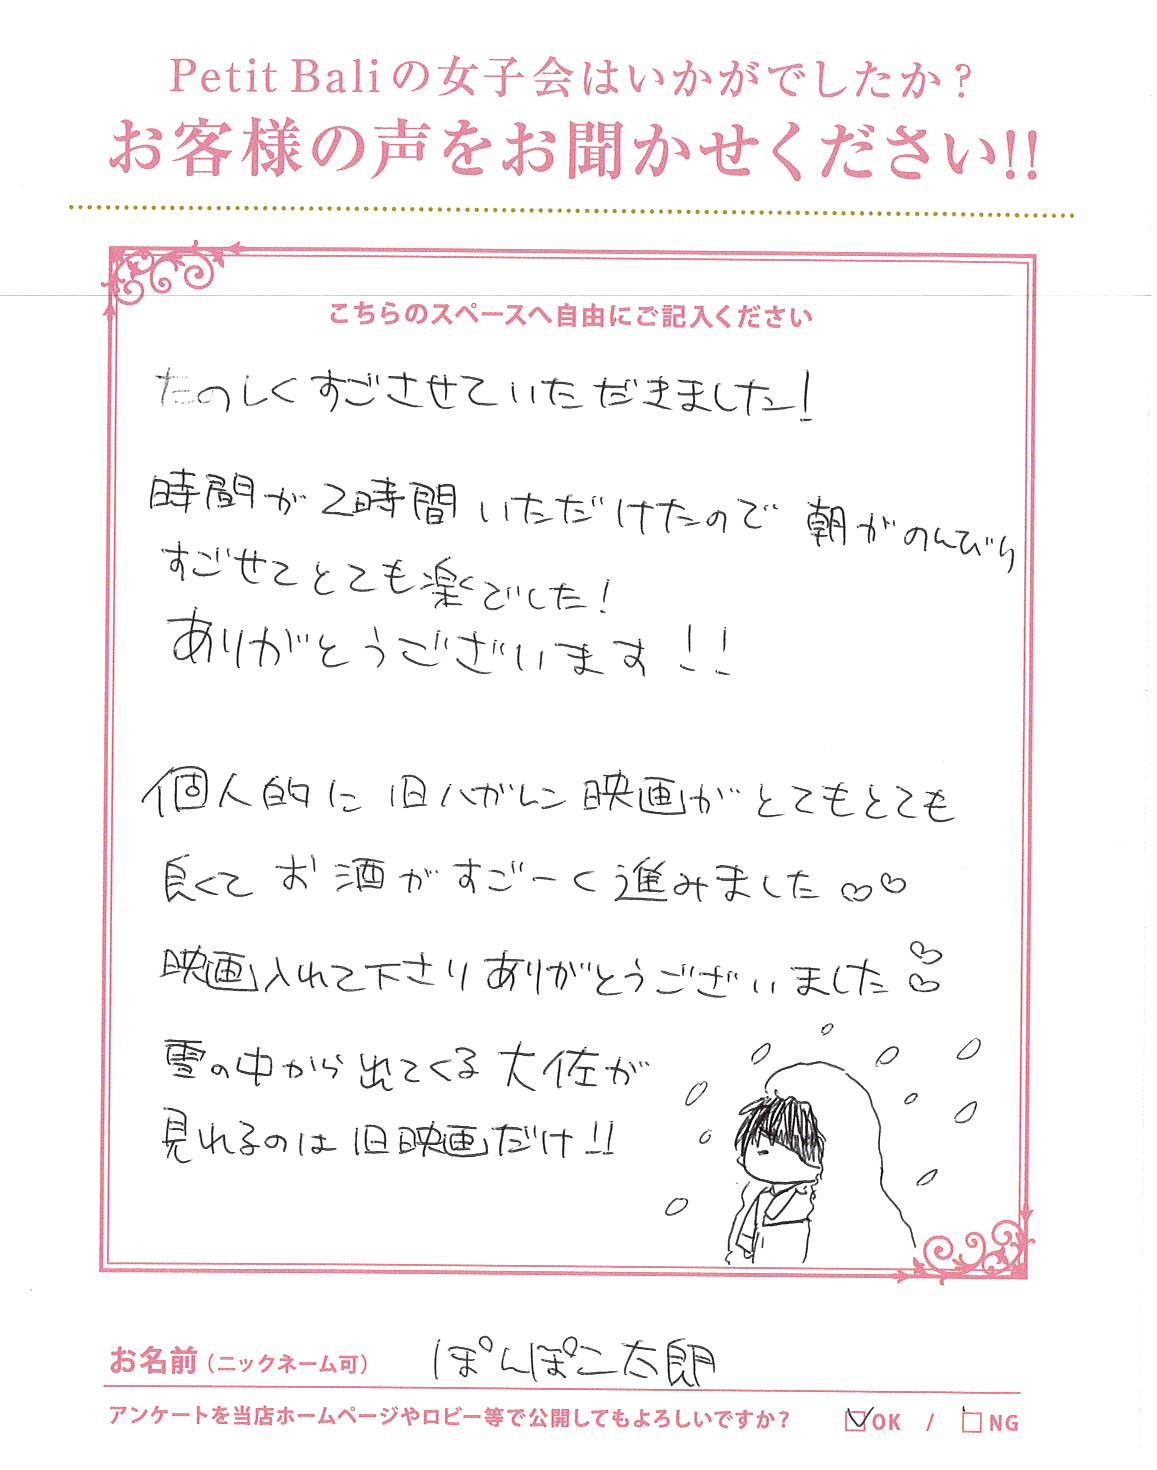 Petit Baliの女子会はいかがでしたか？
お客様の声をお聞かせください!!
こちらのスペースへ自由にご記入ください
たのしくすごさせていただきました！
時間が2時間いただけたので朝がのんびり
すごせてとても楽でした！
ありがとうございます！！
個人的に旧ハガレン映画がとてもとても
良くてお酒がすごーく進みました♡♡
映画入れて下さりありがとうございました♡♡
雪の中から出てくる大佐が
見れるのは旧映画だけ!!
お名前（ニックネーム可） ぽんぽこ太朗
アンケートを当店ホームページやロビー等で公開してもよろしいですか？ ☑OK / □NG